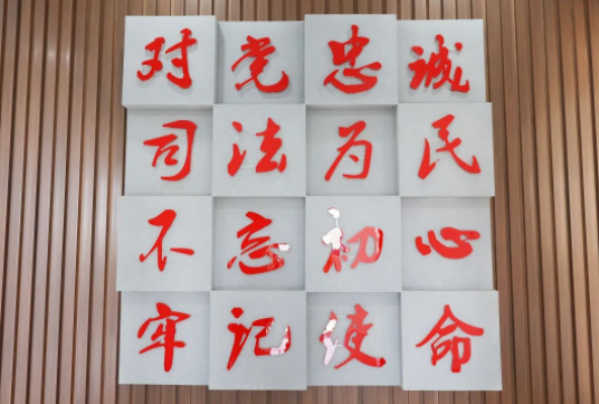 对党忠诚
司法为民
不忘初心
牢记使命